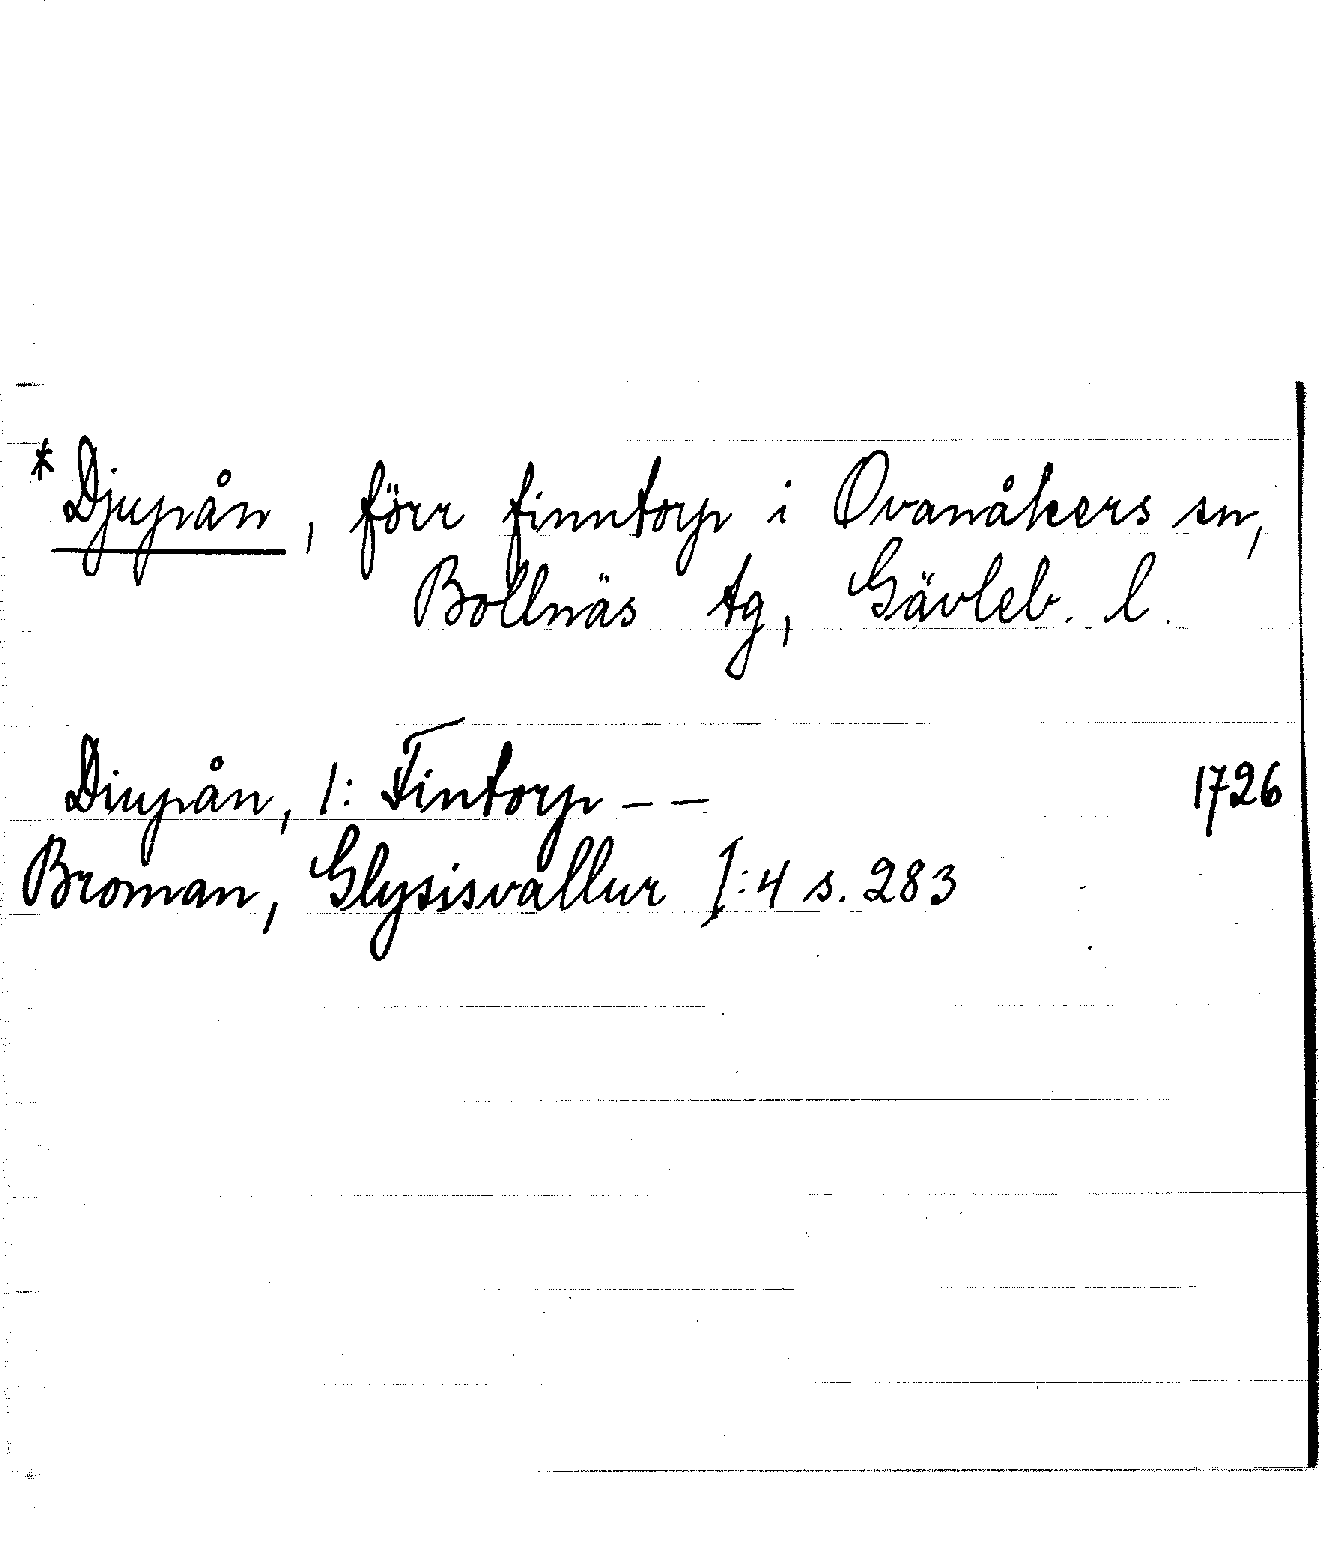 * Djupån, förr finntorp i Ovanåkers sn,
Bollnäs tg, Gävleb. l.
Diupån, 1: Fintorp – – 1726
Broman, Glysisvallur I:4 s. 283